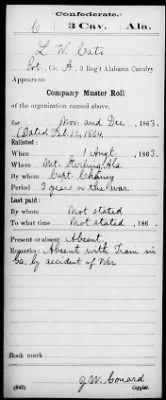 Confederate.
6 3 Cav. Ala.
L. W. Cats
Pvt., Co. A, 3 Reg't Alabama Cavalry
Appears on
Company Muster Roll
of the organization named above,
for Nov and Dec, 1863.
Dated Feb. 12, 1864.
Enlisted:
When 1 Augt., 1863.
Where Mt. Sterling, Ala
By whom Capt. Chaney
Period 3 years or the war.
Last paid:
By whom Not stated
To what time Not stated, 186 .
Present or absent Absent
Remarks: Absent with Train in
Ga. by accident of War
Book mark:
(642) J. W. Conard
Copyist.